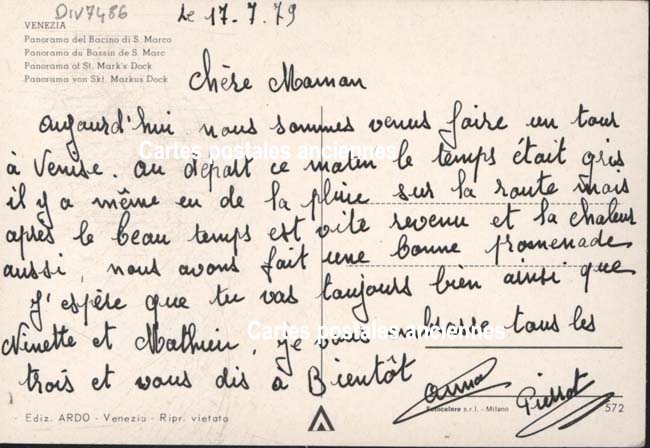 DIV7486
Le 17.7.79
VENEZIA
Panorama del Bacino di S. Marco
Panorama du Bassin de S. Marc
Panorama of St. Mark's Dock
Panorama von Skt. Markus Dock
Chère Maman
aujourd'hui nous sommes venus faire un tour
à Venise. au départ ce matin le temps était gris
il y a même eu de la pluie sur la route mais
après le beau temps est vite revenu et la chaleur
aussi, nous avons fait une bonne promenade
J'espère que tu vas toujours bien ainsi que
Ninette et Mathieu, je vous embrasse tous les
trois et vous dis à Bientôt
Anna Pierrot
Cartes postales anciennes
Cartes postales anciennes
Ediz. ARDO - Venezia - Ripr. vietata
Fotocelere s.r.l. - Milano
572